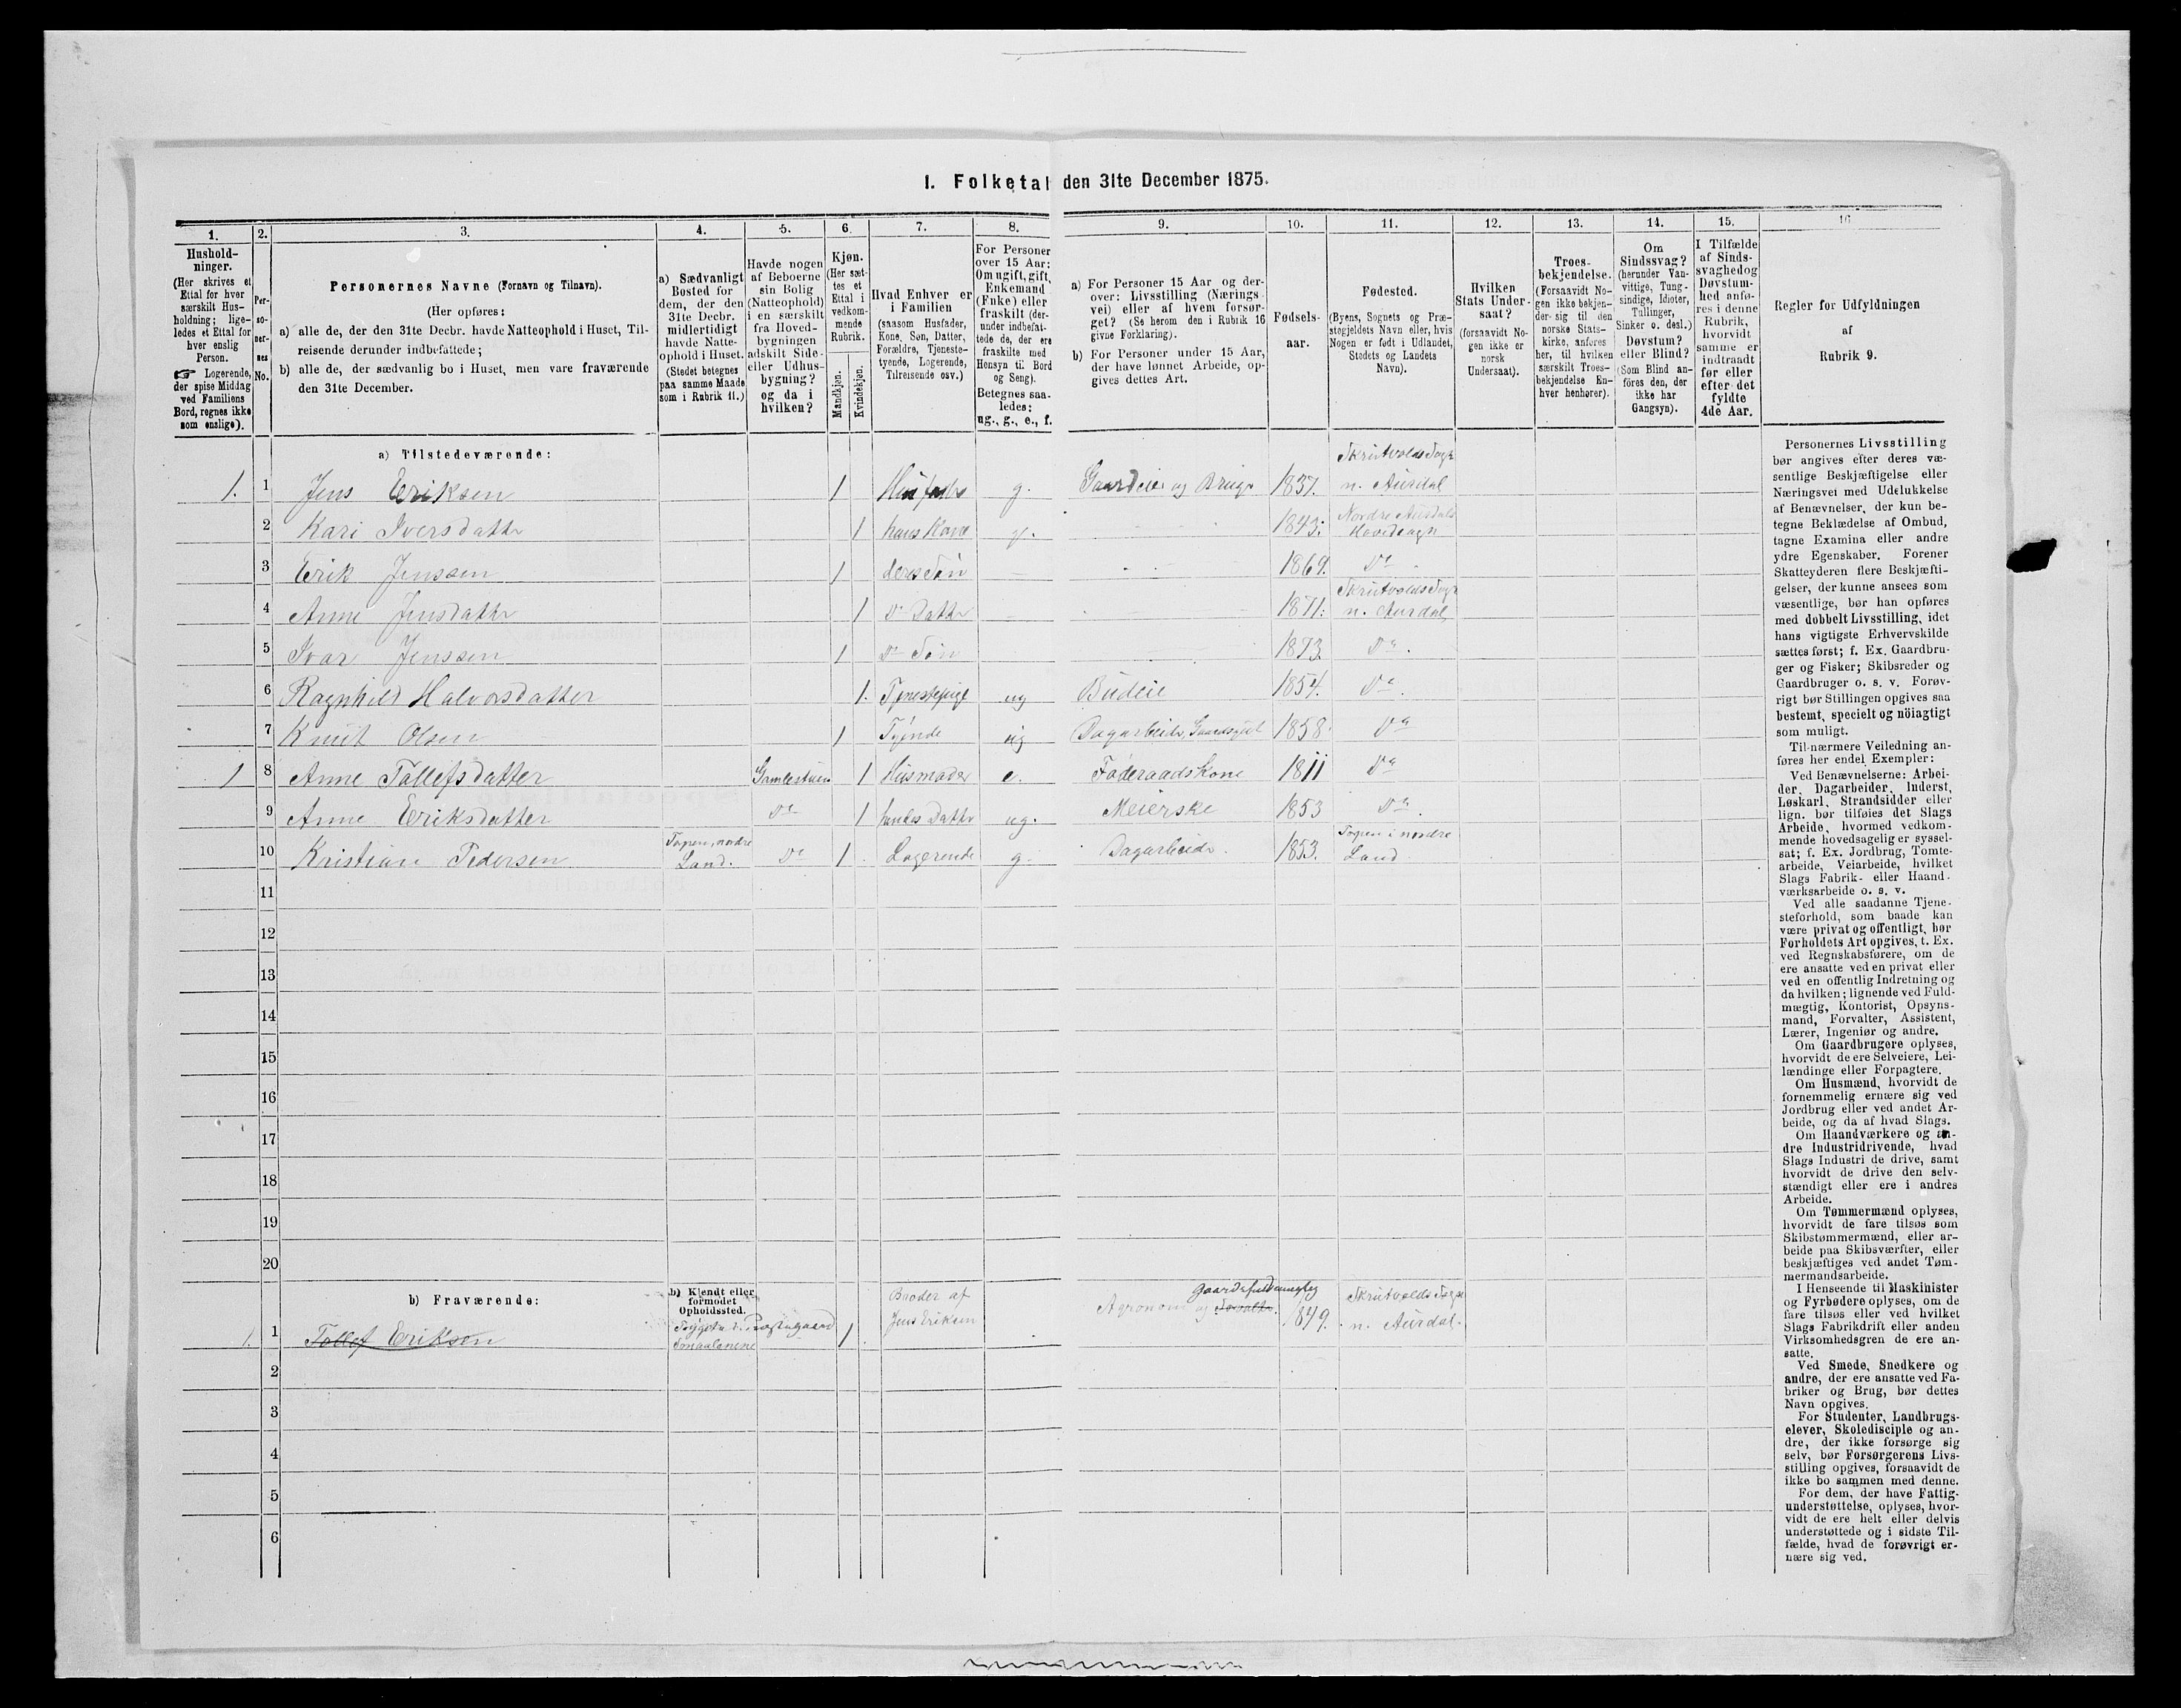 I. Folketal den 31te December 1875.
1. 2. 3. 4. 5. 6. 7. 8. 9. 10. 11. 12. 13. 14. 15. 16
Hushold-
ninger.
(Her skrives et
Ettal for hver
særskilt Hus-
holdning; lige-
ledes et Ettal for
hver enslig
Person.
☞ Logerende,
der spise Middag
ved Familiens
Bord, regnes ikke
som enslige).
Per-
so-
ner-
nes
No.
Personernes Navne (Fornavn og Tilnavn).
(Her opføres:
a) alle de, der den 31te Decbr. havde Natteophold i Huset, Til-
reisende derunder indbefattede;
b) alle de, der sædvanlig bo i Huset, men vare fraværende
den 31te December.
a) Sædvanligt
Bosted for
dem, der den
31te Decbr.
midlertidigt
havde Natte-
ophold i Huset.
(Stedet betegnes
paa samme Maade
som i Rubrik 11.)
Havde nogen
af Beboerne
sin Bolig
(Natteophold)
i en særskilt
fra Hoved-
bygningen
adskilt Side-
eller Udhus-
bygning?
og da i
hvilken?
Kjøn.
(Her sæt-
tes et
Ettal i
vedkom-
mende
Rubrik.
Mandkjøn.
Kvindekjøn.
Hvad Enhver er
i Familien
(saasom Husfader,
Kone, Søn, Datter,
Forældre, Tjeneste-
tyende, Logerende,
Tilreisende osv.)
For Personer
over 15 Aar:
Om ugift, gift,
Enkemand
(Enke) eller
fraskilt (der-
under indbefat-
tede de, der ere
fraskilte med
Hensyn til Bord
og Seng).
Betegnes saa-
ledes:
ug., g., e., f.
a) For Personer 15 Aar og der-
over: Livsstilling (Nærings-
vei) eller af hvem forsør-
get? (Se herom den i Rubrik 16
givne Forklaring).
b) For Personer under 15 Aar,
der have lønnet Arbeide, op-
gives dettes Art.
Fødsels-
aar.
Fødested.
(Byens, Sognets og Præ-
stegjeldets Navn eller, hvis
Nogen er født i Udlandet,
Stedets og Landets
Navn).
Hvilken
Stats Under-
saat?
(forsaavidt No-
gen ikke er
norsk
Undersaat).
Troes-
bekjendelse.
(Forsaavidt No-
gen ikke bekjen-
der sig til den
norske Stats-
kirke, anføres
her, til hvilken
særskilt Troes-
bekjendelse En-
hver henhører).
Om
Sindssvag?
(herunder Van-
vittige, Tung-
sindige, Idioter,
Tullinger,
Sinker o. desl.)
Døvstum?
eller Blind?
(Som Blind an-
föres den, der
ikke har
Gangsyn).
I Tilfælde
af Sinds-
svaghed og
Døvstum-
hed anfø-
res i denne
Rubrik,
hvorvidt
samme er
indtraadt
før eller
efter det
fyldte
4de Aar.
Regler for Udfyldningen
af
Rubrik 9.
a) Tilstedeværende:
1. 1 Jens Eriksen 1 Husfader g. Gaardeier og Bruger 1837. Skrutvolds Sogn n. Aurdal
2 Kari Iversdatter 1 hans Kone g. 1843. Nordre Aurdals Hovedsogn
3 Erik Jenssen 1 deres Søn 1869. Do
4 Anne Jensdatter 1 Do Datter 1871. Skrutvolds Sogn n. Aurdal
5 Ivar Jenssen 1 Do Søn 1873 Do.
6 Ragnhild Halvorsdatter 1. Tjenestepige ug Budeie 1854. Do.
7 Knut Olsen 1 Tyende ug Dagarbeider, Gaardsgut 1858 Do
1 8 Anne Tollefsdatter Gamlestuen 1 Husmoder e. Føderaadskone 1811 Do
9 Anne Eriksdatter Do 1 hendes Datter ug. Meierske 1853 Do
10 Kristian Pedersen Torpen, nordre Land. Do 1 Logerende g. Dagarbeider. 1853. Torpen i nordre Land
11
12
13
14
15
16
17
18
19
20
b) Fraværende:
b) Kjendt eller
formodet
Opholdssted.
1. 1 Tollef Eriksen Præstegaard Smaalenene 1 Broder af Jens Eriksen Agronom og gaardsfuldmægtig 1849. Skrutvolds Sogn n. Aurdal.
2
3
4
5
6
Personernes Livsstilling
bør angives efter deres væ-
sentlige Beskjæftigelse eller
Næringsvei med Udelukkelse
af Benævnelser, der kun be-
tegne Beklædelse af Ombud,
tagne Examina eller andre
ydre Egenskaber. Forener
Skatteyderen flere Beskjæfti-
gelser, der kunne ansees som
væsentlige, bør han opføres
med dobbelt Livsstilling, idet
hans vigtigste Erhvervskilde
sættes først; f. Ex. Gaardbru-
ger og Fisker; Skibsreder og
Gaardbruger o. s. v. Forøv-
rigt bør Stillingen opgives saa
bestemt, specielt og nöiagtigt
som muligt.
Til nærmere Veiledning an-
føres her endel Exempler:
Ved Benævnelserne: Arbei-
der, Dagarbeider, Inderst,
Løskarl, Strandsidder eller
lign. bør tilføies det Slags
Arbeide, hvormed vedkom-
mende hovedsagelig er syssel-
sat; f. Ex. Jordbrug, Tomte-
arbeide, Veiarbeide, hvilket
Slags Fabrik- eller Haand-
værksarbeide o. s. v.
Ved alle saadanne Tjene-
steforhold, som baade kan
være privat og offentligt, bør
Forholdets Art opgives, t. Ex.
ved Regnskabsførere, om de
ere ansatte ved en privat eller
ved en offentlig Indretning og
da hvilken; lignende ved Fuld-
mægtig, Kontorist, Opsyns-
mand, Forvalter, Assistent,
Lærer, Ingeniør og andre.
Om Gaardbrugere oplyses,
hvorvidt de ere Selveiere, Lei-
lændinge eller Forpagtere.
Om Husmænd, hvorvidt de
fornemmelig ernære sig ved
Jordbrug eller ved andet Ar-
beide, og da af hvad Slags.
Om Haandværkere og an-
dre Industridrivende, hvad
Slags Industri de drive, samt
hvorvidt de drive den selv-
stændigt eller ere i andres
Arbeide.
Om Tømmermænd oplyses,
hvorvidt de fare tilsøs som
Skibstømmermænd, eller ar-
beide paa Skibsværfter, eller
beskjæftiges ved andet Tøm-
mermandsarbeide.
I Henseende til Maskinister
og Fyrbødere oplyses, om de
fare tilsøs eller ved hvilket
Slags Fabrikdrift eller anden
Virksomhedsgren de ere an-
satte.
Ved Smede, Snedkere og
andre, der ere ansatte ved Fa-
briker og Brug, bør dettes
Navn opgives.
For Studenter, Landbrugs-
elever, Skoledisciple og an-
dre, der ikke forsørge sig
selv, bør Forsørgerens Livs-
stilling opgives, forsaavidt de
ikke bo sammen med denne.
For dem, der have Fattig-
understøttelse, oplyses, hvor-
vidt de ere helt eller delvis
understøttede og i sidste Til-
fælde, hvad de forøvrigt er-
nære sig ved.